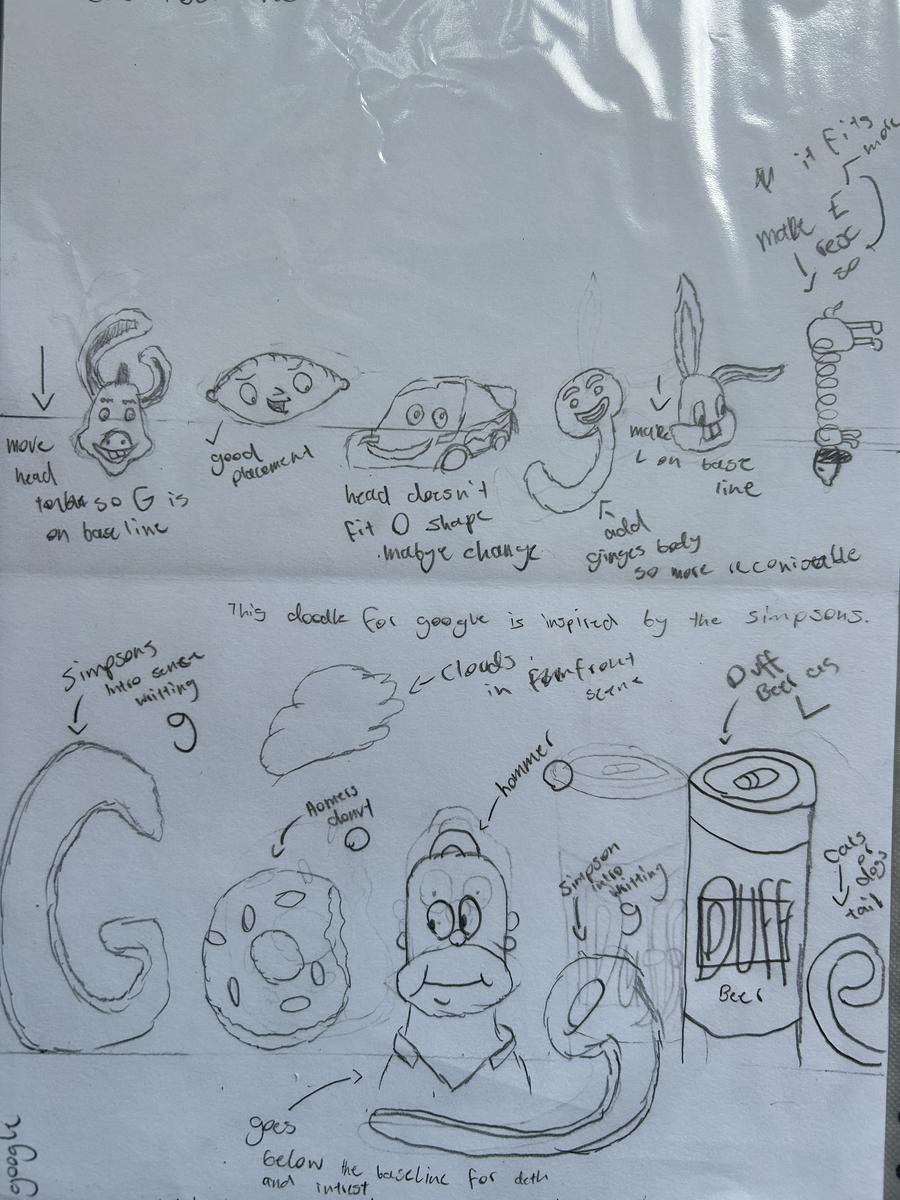 it fits
make E
so
move
head
so G is
on base line
good
placement
head doesn't
fit O shape
mabye change
make
L on base
line
add
ginges body
so more
This doodle for google is inspired by the simpsons.
Simpsons
intro
writting
g
clouds
in front
scene
Duff
Beer
Homers
donut
hommer
Simpson
intro
writting
g
cats
or
dogs
tail
DUFF
Beer
goes
below the baseline for deth
and intrest
google